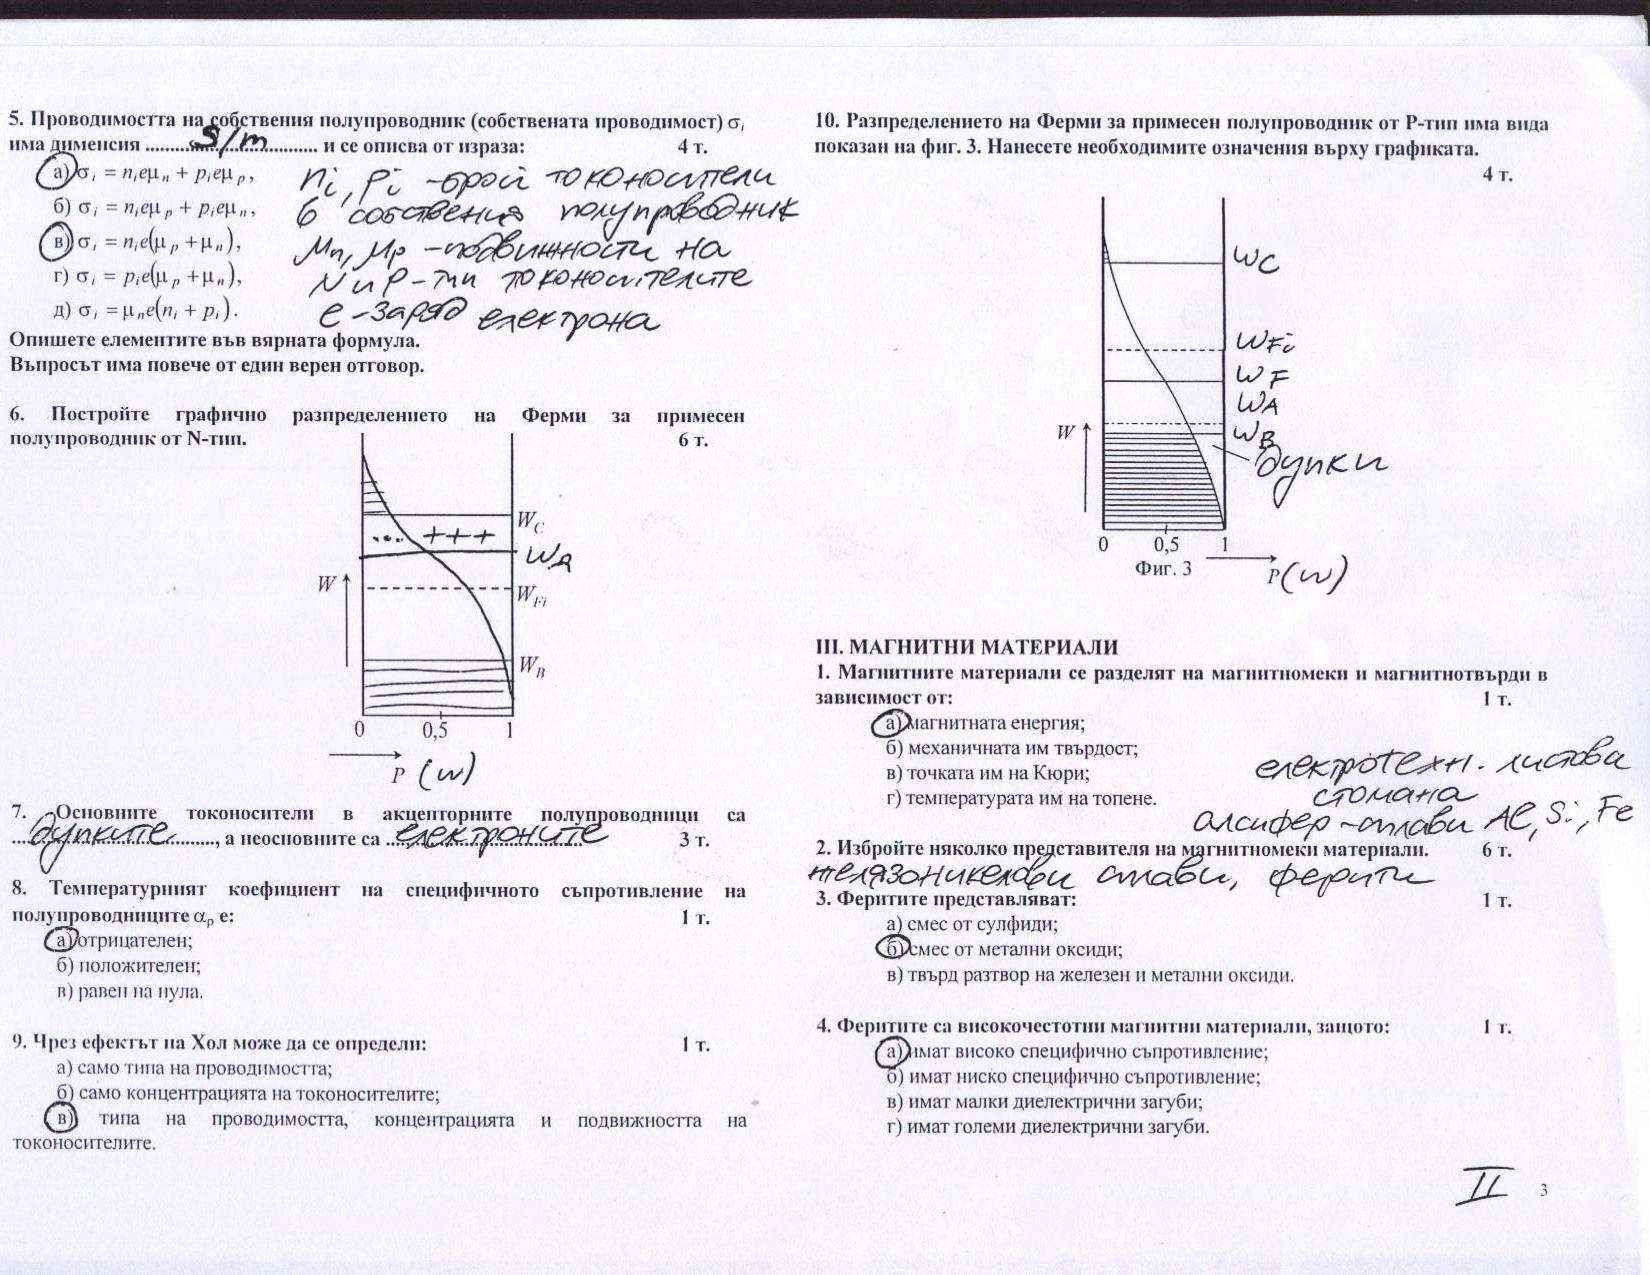 5. Проводимостта на собствения полупроводник (собствената проводимост) σi
има дименсия ........S/m........ и се описва от израза: 4 т.
а) σi = nieμn + pieμp,
б) σi = nieμp + pieμn,
в) σi = nie(μp + μn),
г) σi = pie(μp + μn),
д) σi = μne(ni + pi).
ni, pi - брой токоносители
в собствения полупроводник
μn, μp - подвижности на
N и P - тип токоносителите
e - заряд електрона
Опишете елементите във вярната формула.
Въпросът има повече от един верен отговор.
6. Постройте графично разпределението на Ферми за примесен
полупроводник от N-тип. 6 т.
WC
+++
WД
W
WFi
WB
0 0,5 1
P (w)
7. Основните токоносители в акцепторните полупроводници са
дупките, а неосновните са електроните 3 т.
8. Температурният коефициент на специфичното съпротивление на
полупроводниците αρ е: 1 т.
а) отрицателен;
б) положителен;
в) равен на нула.
9. Чрез ефектът на Хол може да се определи: 1 т.
а) само типа на проводимостта;
б) само концентрацията на токоносителите;
в) типа на проводимостта, концентрацията и подвижността на
токоносителите.
10. Разпределението на Ферми за примесен полупроводник от P-тип има вида
показан на фиг. 3. Нанесете необходимите означения върху графиката.
4 т.
WC
WFi
WF
WA
W
WB
дупки
0 0,5 1
Фиг. 3
P(w)
III. МАГНИТНИ МАТЕРИАЛИ
1. Магнитните материали се разделят на магнитномеки и магнитнотвърди в
зависимост от: 1 т.
а) магнитната енергия;
б) механичната им твърдост;
в) точката им на Кюри;
г) температурата им на топене.
електротехн. листова
стомана
алсифер - сплави Al, Si, Fe
2. Избройте няколко представителя на магнитномеки материали. 6 т.
желязоникелови сплави, ферити
3. Феритите представляват: 1 т.
а) смес от сулфиди;
б) смес от метални оксиди;
в) твърд разтвор на железен и метални оксиди.
4. Феритите са високочестотни магнитни материали, защото: 1 т.
а) имат високо специфично съпротивление;
б) имат ниско специфично съпротивление;
в) имат малки диелектрични загуби;
г) имат големи диелектрични загуби.
II
3